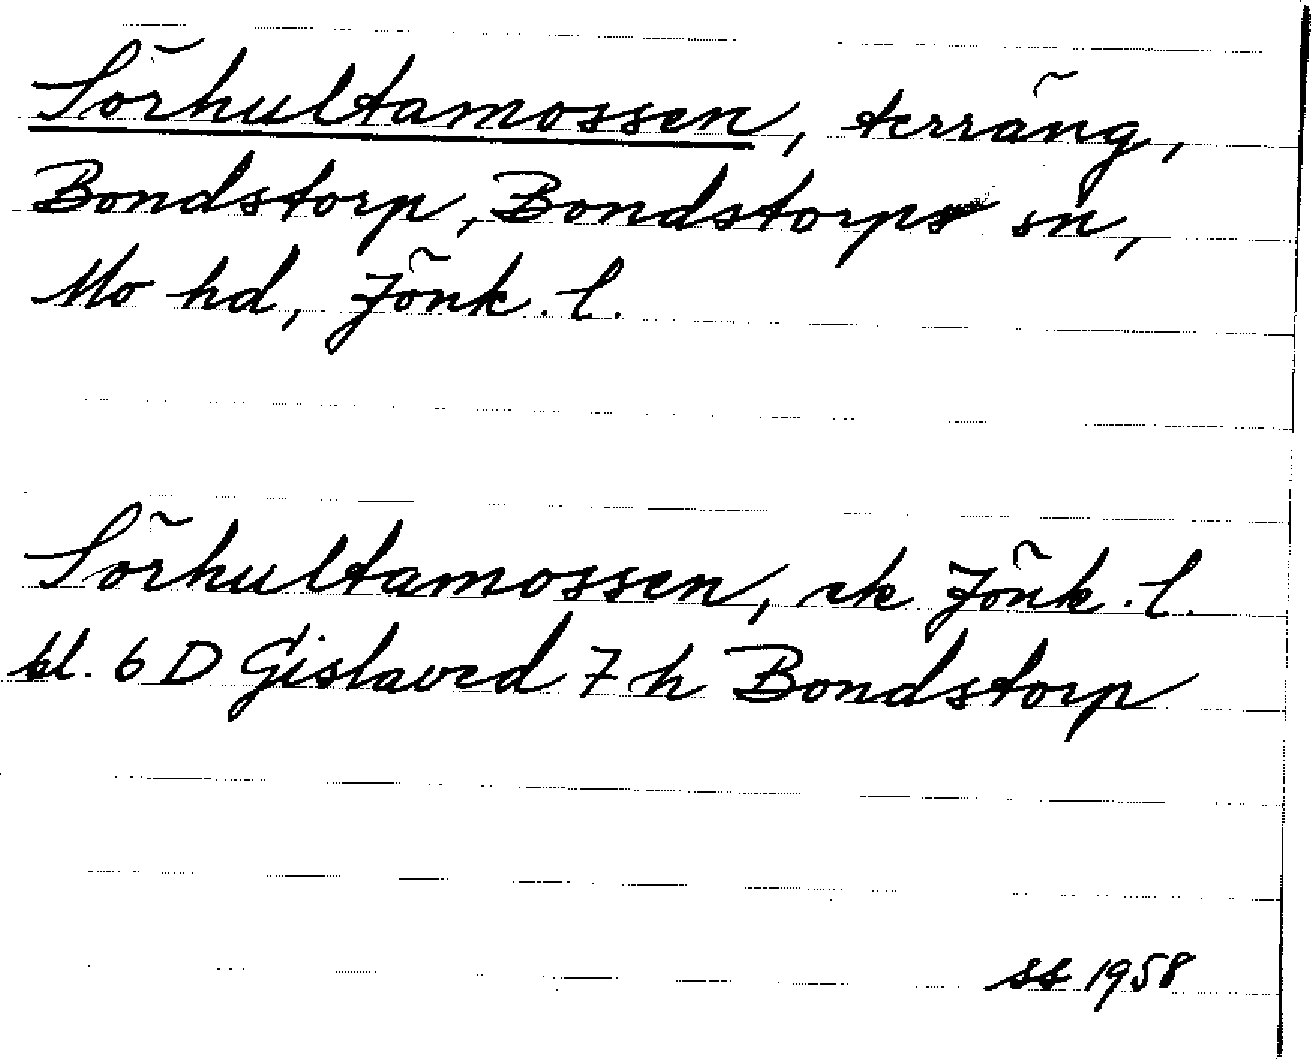 Sörhultamossen, terräng,
Bondstorp, Bondstorps sn,
Mo hd, Jönk. l.
Sörhultamossen, ek Jönk. l.
bl. 6 D Gislaved 7 h Bondstorp
ss 1958